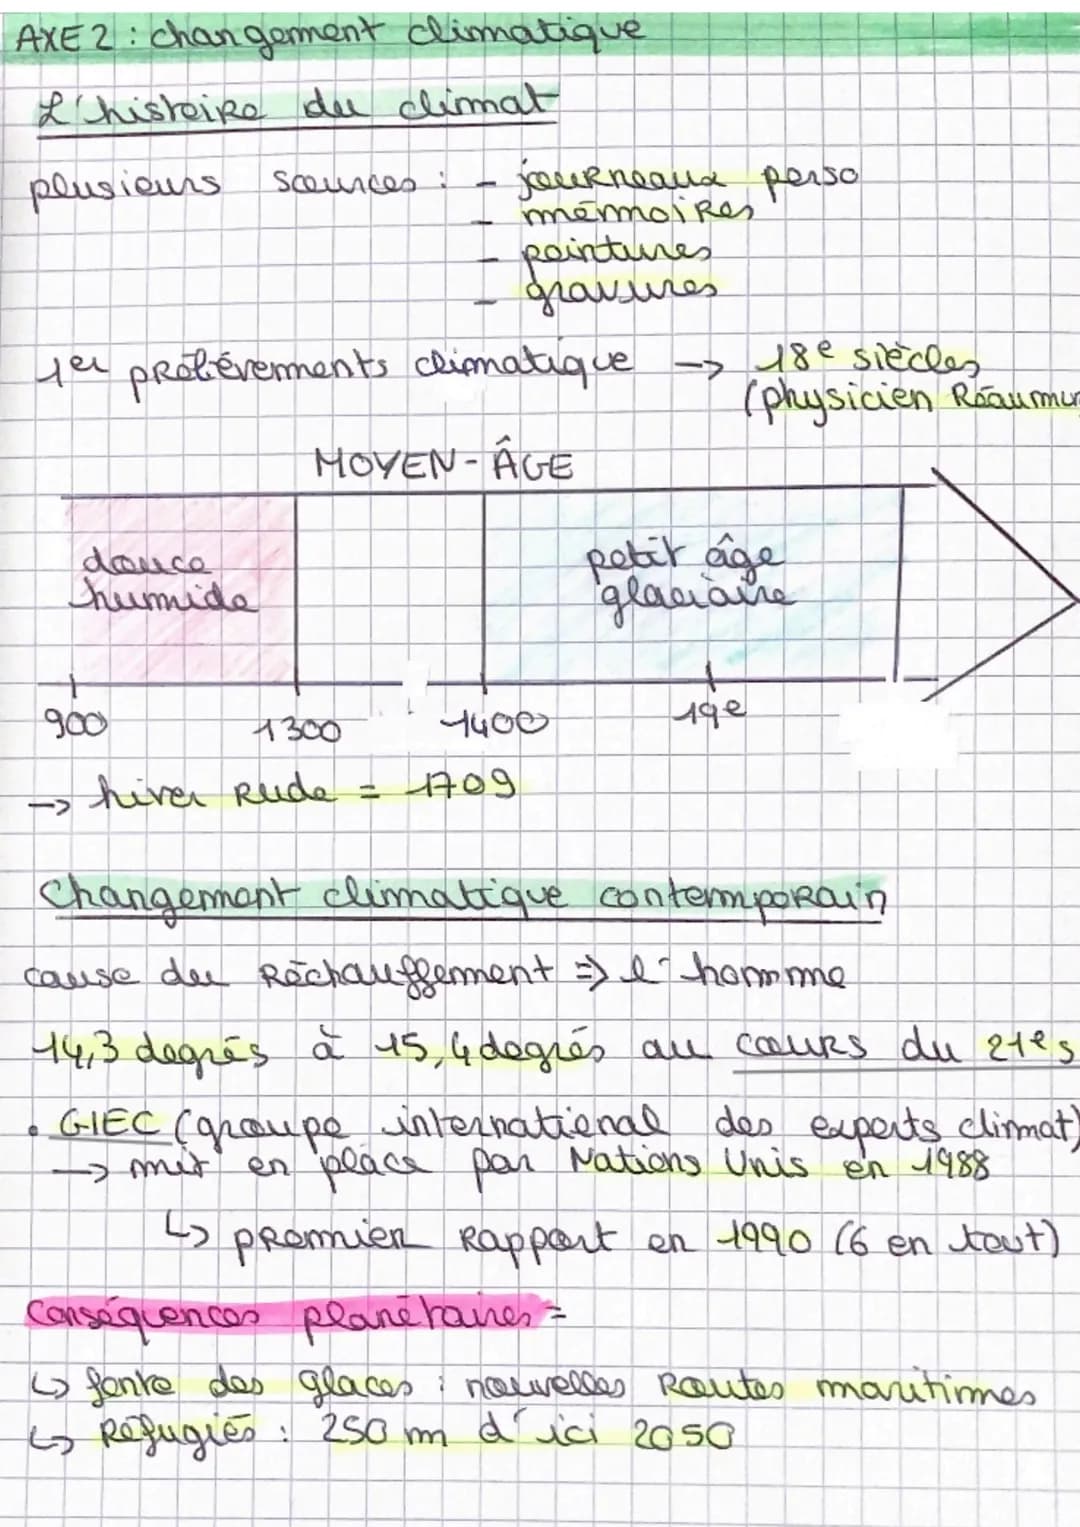 AXE 2 : changement climatique
L'histoire du climat
plusieurs sources : - journeaux perso
- mémoires
- peintures
- gravures
1er prélévements climatique -> 18e siècles
(physicien Réaumur
MOYEN-ÂGE
douce petit âge
humide glaciaire
900 1300 1400 19e
-> hiver rude = 1709
Changement climatique contemporain
cause du réchauffement => l'homme
14,3 degrés à 15,4 degrés au cours du 21e s
• GIEC (groupe international des experts climat)
-> mit en place par Nations Unis en 1988
↳ premier rapport en 1990 (6 en tout)
Conséquences planétaires =
↳ fonte des glaces : nouvelles routes maritimes
↳ Réfugiés : 250 m d'ici 2050